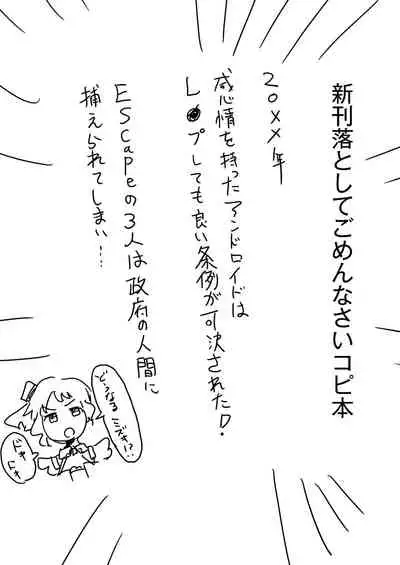 新刊落としてごめんなさいコピ本
20××年
感情を持ったアンドロイドは
L●プしても良い条例が可決された!
EScapeの3人は政府の人間に
捕えられてしまい…
どうなるミズキ!?
ドキドキ